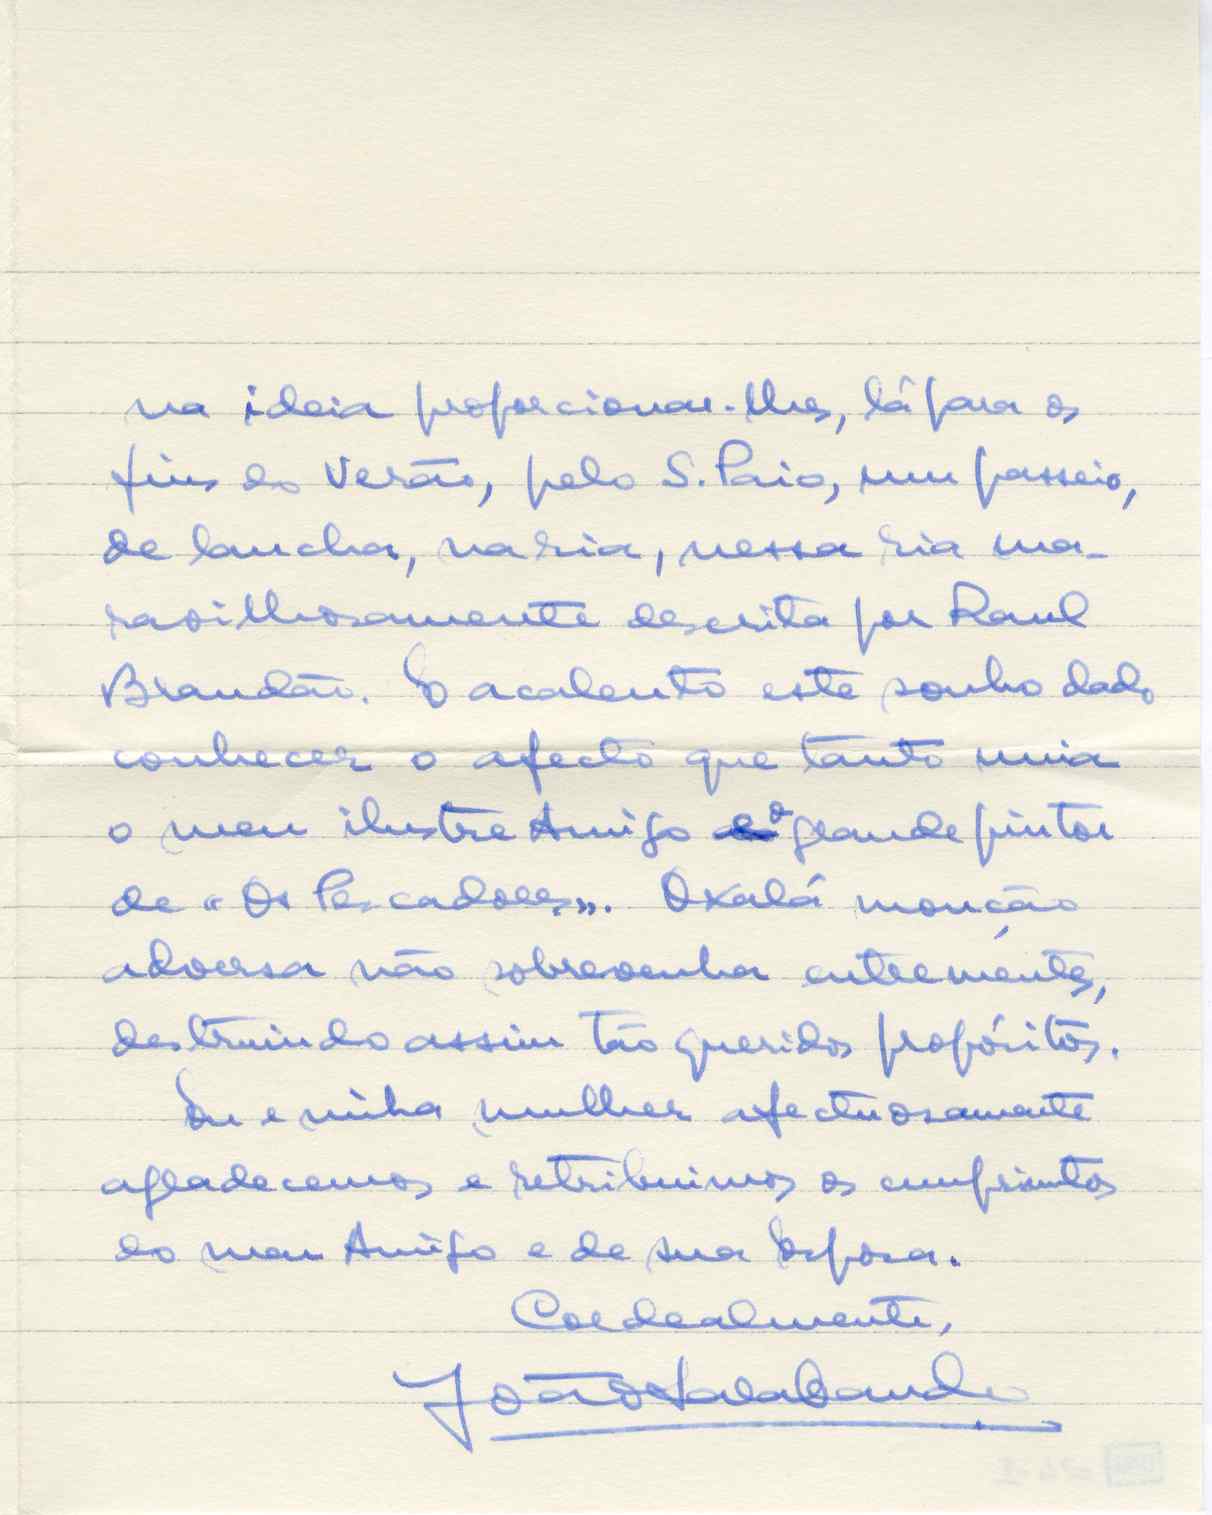 na ideia proporcionar-lhes, lá para os
fins do Verão, pelo S. Paio, um passeio,
de lancha, na ria, nessa ria ma-
ravilhosamente descrita por Raul
Brandão. E acalento este sonho dado
conhecer o afecto que tanto unia
o meu ilustre Amigo ao grande pintor
de «Os Pescadores». Oxalá monção
adversa não sobrevenha entrementes,
destruindo assim tão queridos propósitos.
Eu e minha mulher afectuosamente
agradecemos e retribuimos os cumprimtos
do meu Amigo e de sua Esposa.
Cordealmente,
João Sarabando